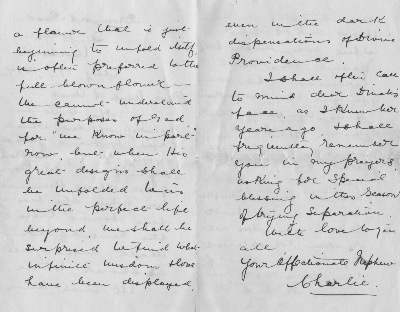 a flower that is just
beginning to unfold itself,
is often preferred to the
full blown flower –
We cannot understand
the purposes of God
for "we know in part"
now, but when His
great designs shall
be unfolded to us
in the perfect life
beyond, we shall be
surprised to find what
infinite wisdom & love
have been displayed,
even in the dark
dispensations of Divine
Providence.
I shall often call
to mind dear
face, as I knew her
years ago. I shall
frequently remember
you in my prayers,
asking for special
blessing in this season
of trying separation.
With love to you
all
Your affectionate Nephew
Charlie.